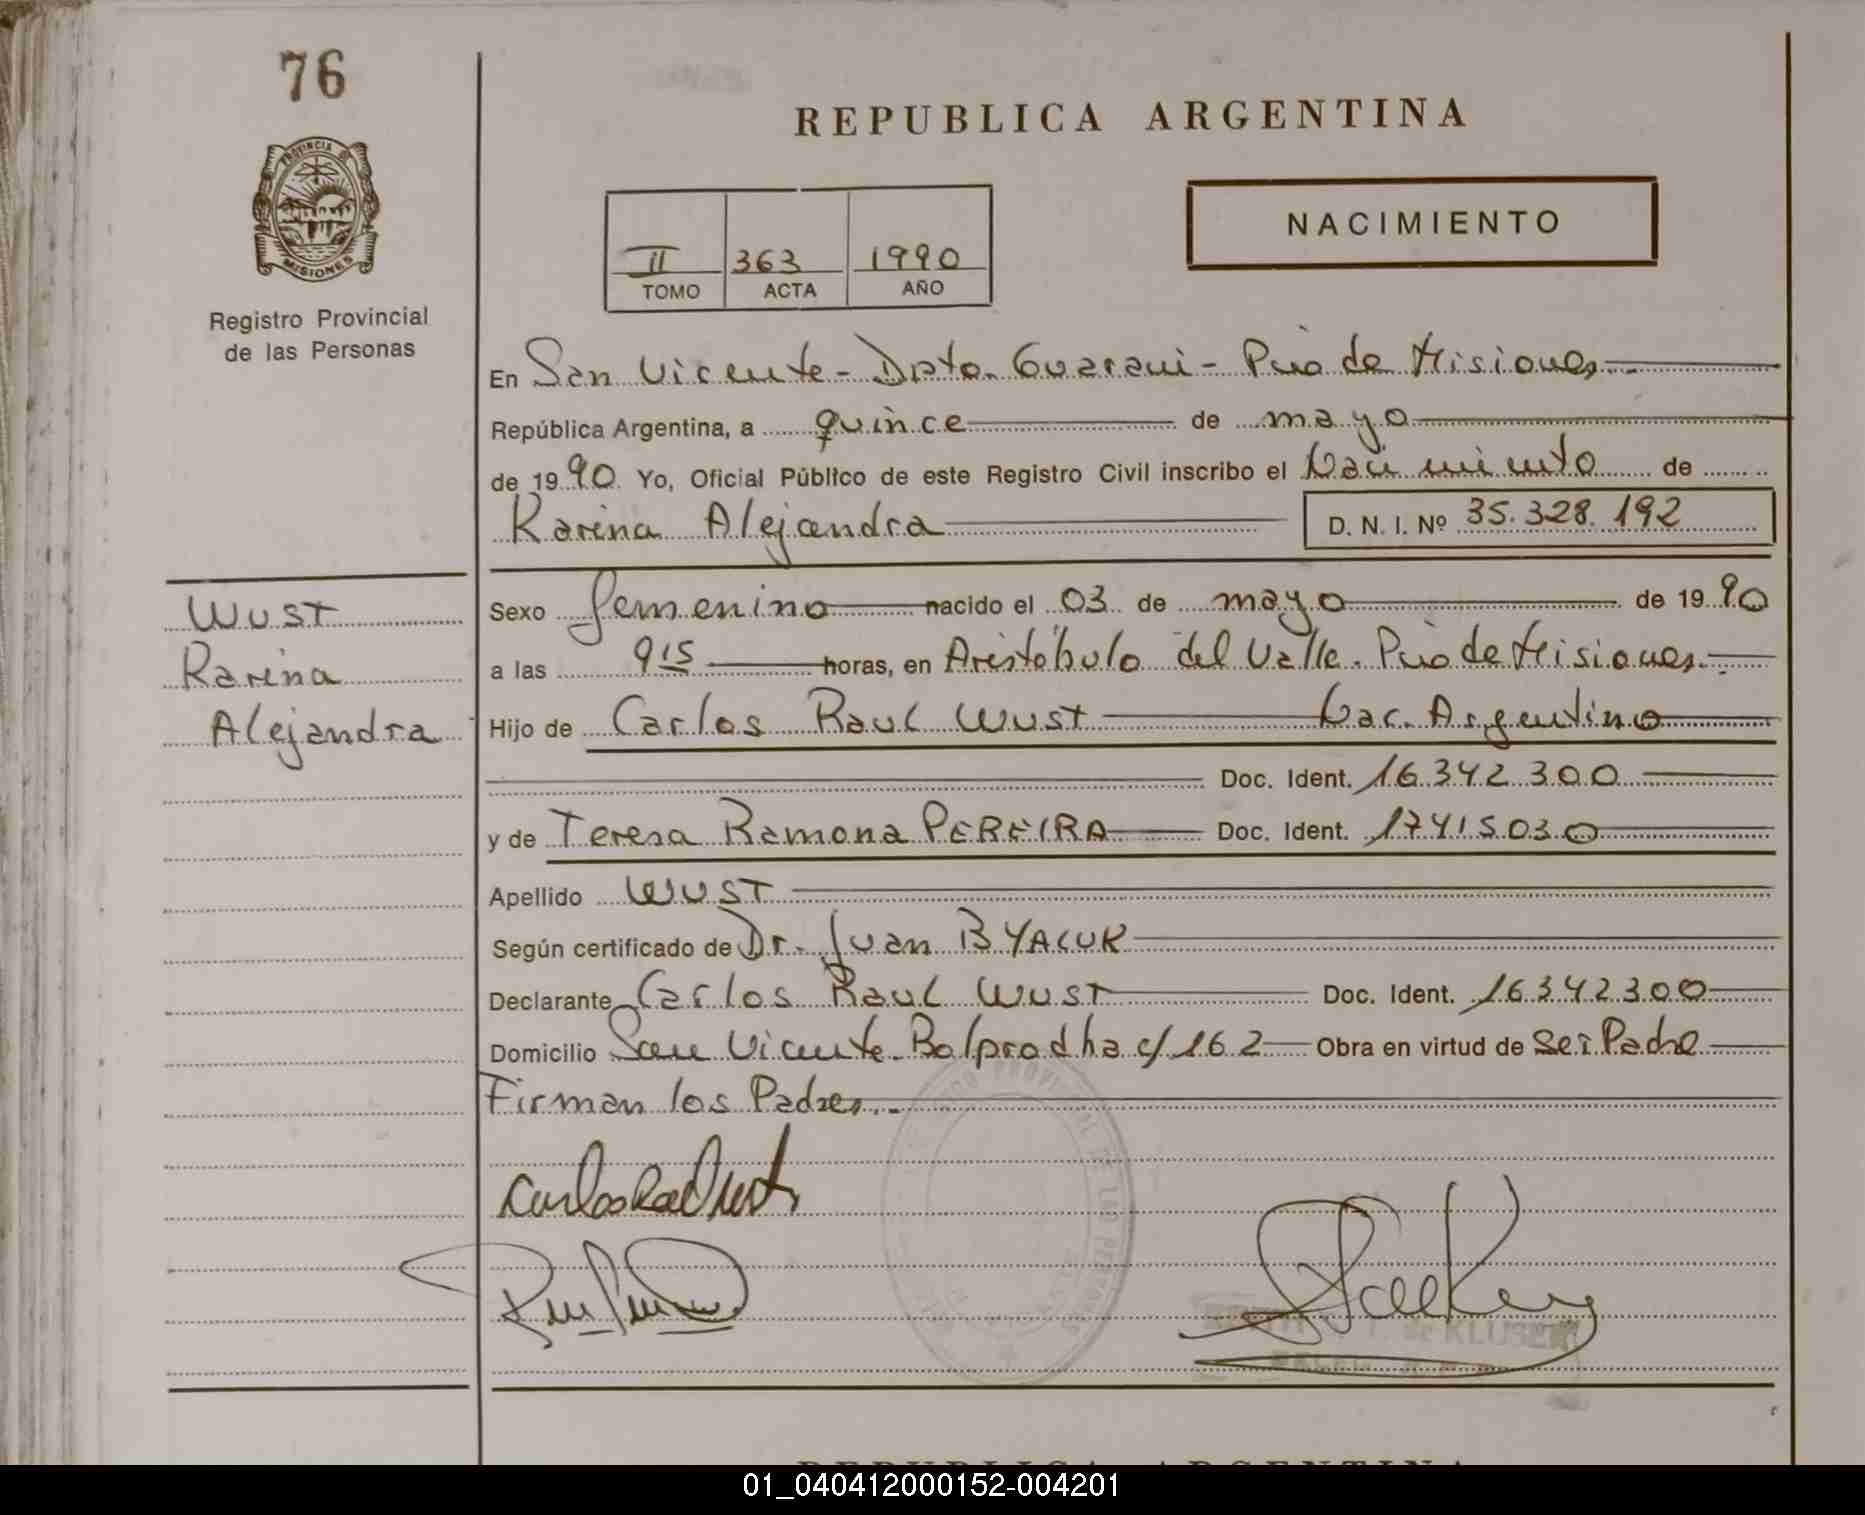 76
PROVINCIA DE
MISIONES
Registro Provincial
de las Personas
REPUBLICA ARGENTINA
II 363 1990
TOMO ACTA AÑO
NACIMIENTO
En San Vicente - Dpto. Guarani - Pcia de Misiones
República Argentina, a quince de mayo
de 1990 Yo, Oficial Público de este Registro Civil inscribo el Nacimiento de
Karina Alejandra D. N. I. Nº 35.328.192
Wust
Karina
Alejandra
Sexo femenino nacido el 03 de mayo de 1990
a las 915 horas, en Aristóbulo del Valle. Pcia de Misiones.
Hijo de Carlos Raul Wust Nac. Argentino
Doc. Ident. 16.342.300
y de Teresa Ramona PEREIRA Doc. Ident. 17415030
Apellido WUST
Según certificado de Dr. Juan BYACUK
Declarante Carlos Raul Wust Doc. Ident. 16342300
Domicilio San Vicente. c/ 162 Obra en virtud de ser Padre
Firman los Padres.
Carlos Raul Wust
de KLUSENER
REPUBLICA ARGENTINA
01_040412000152-004201